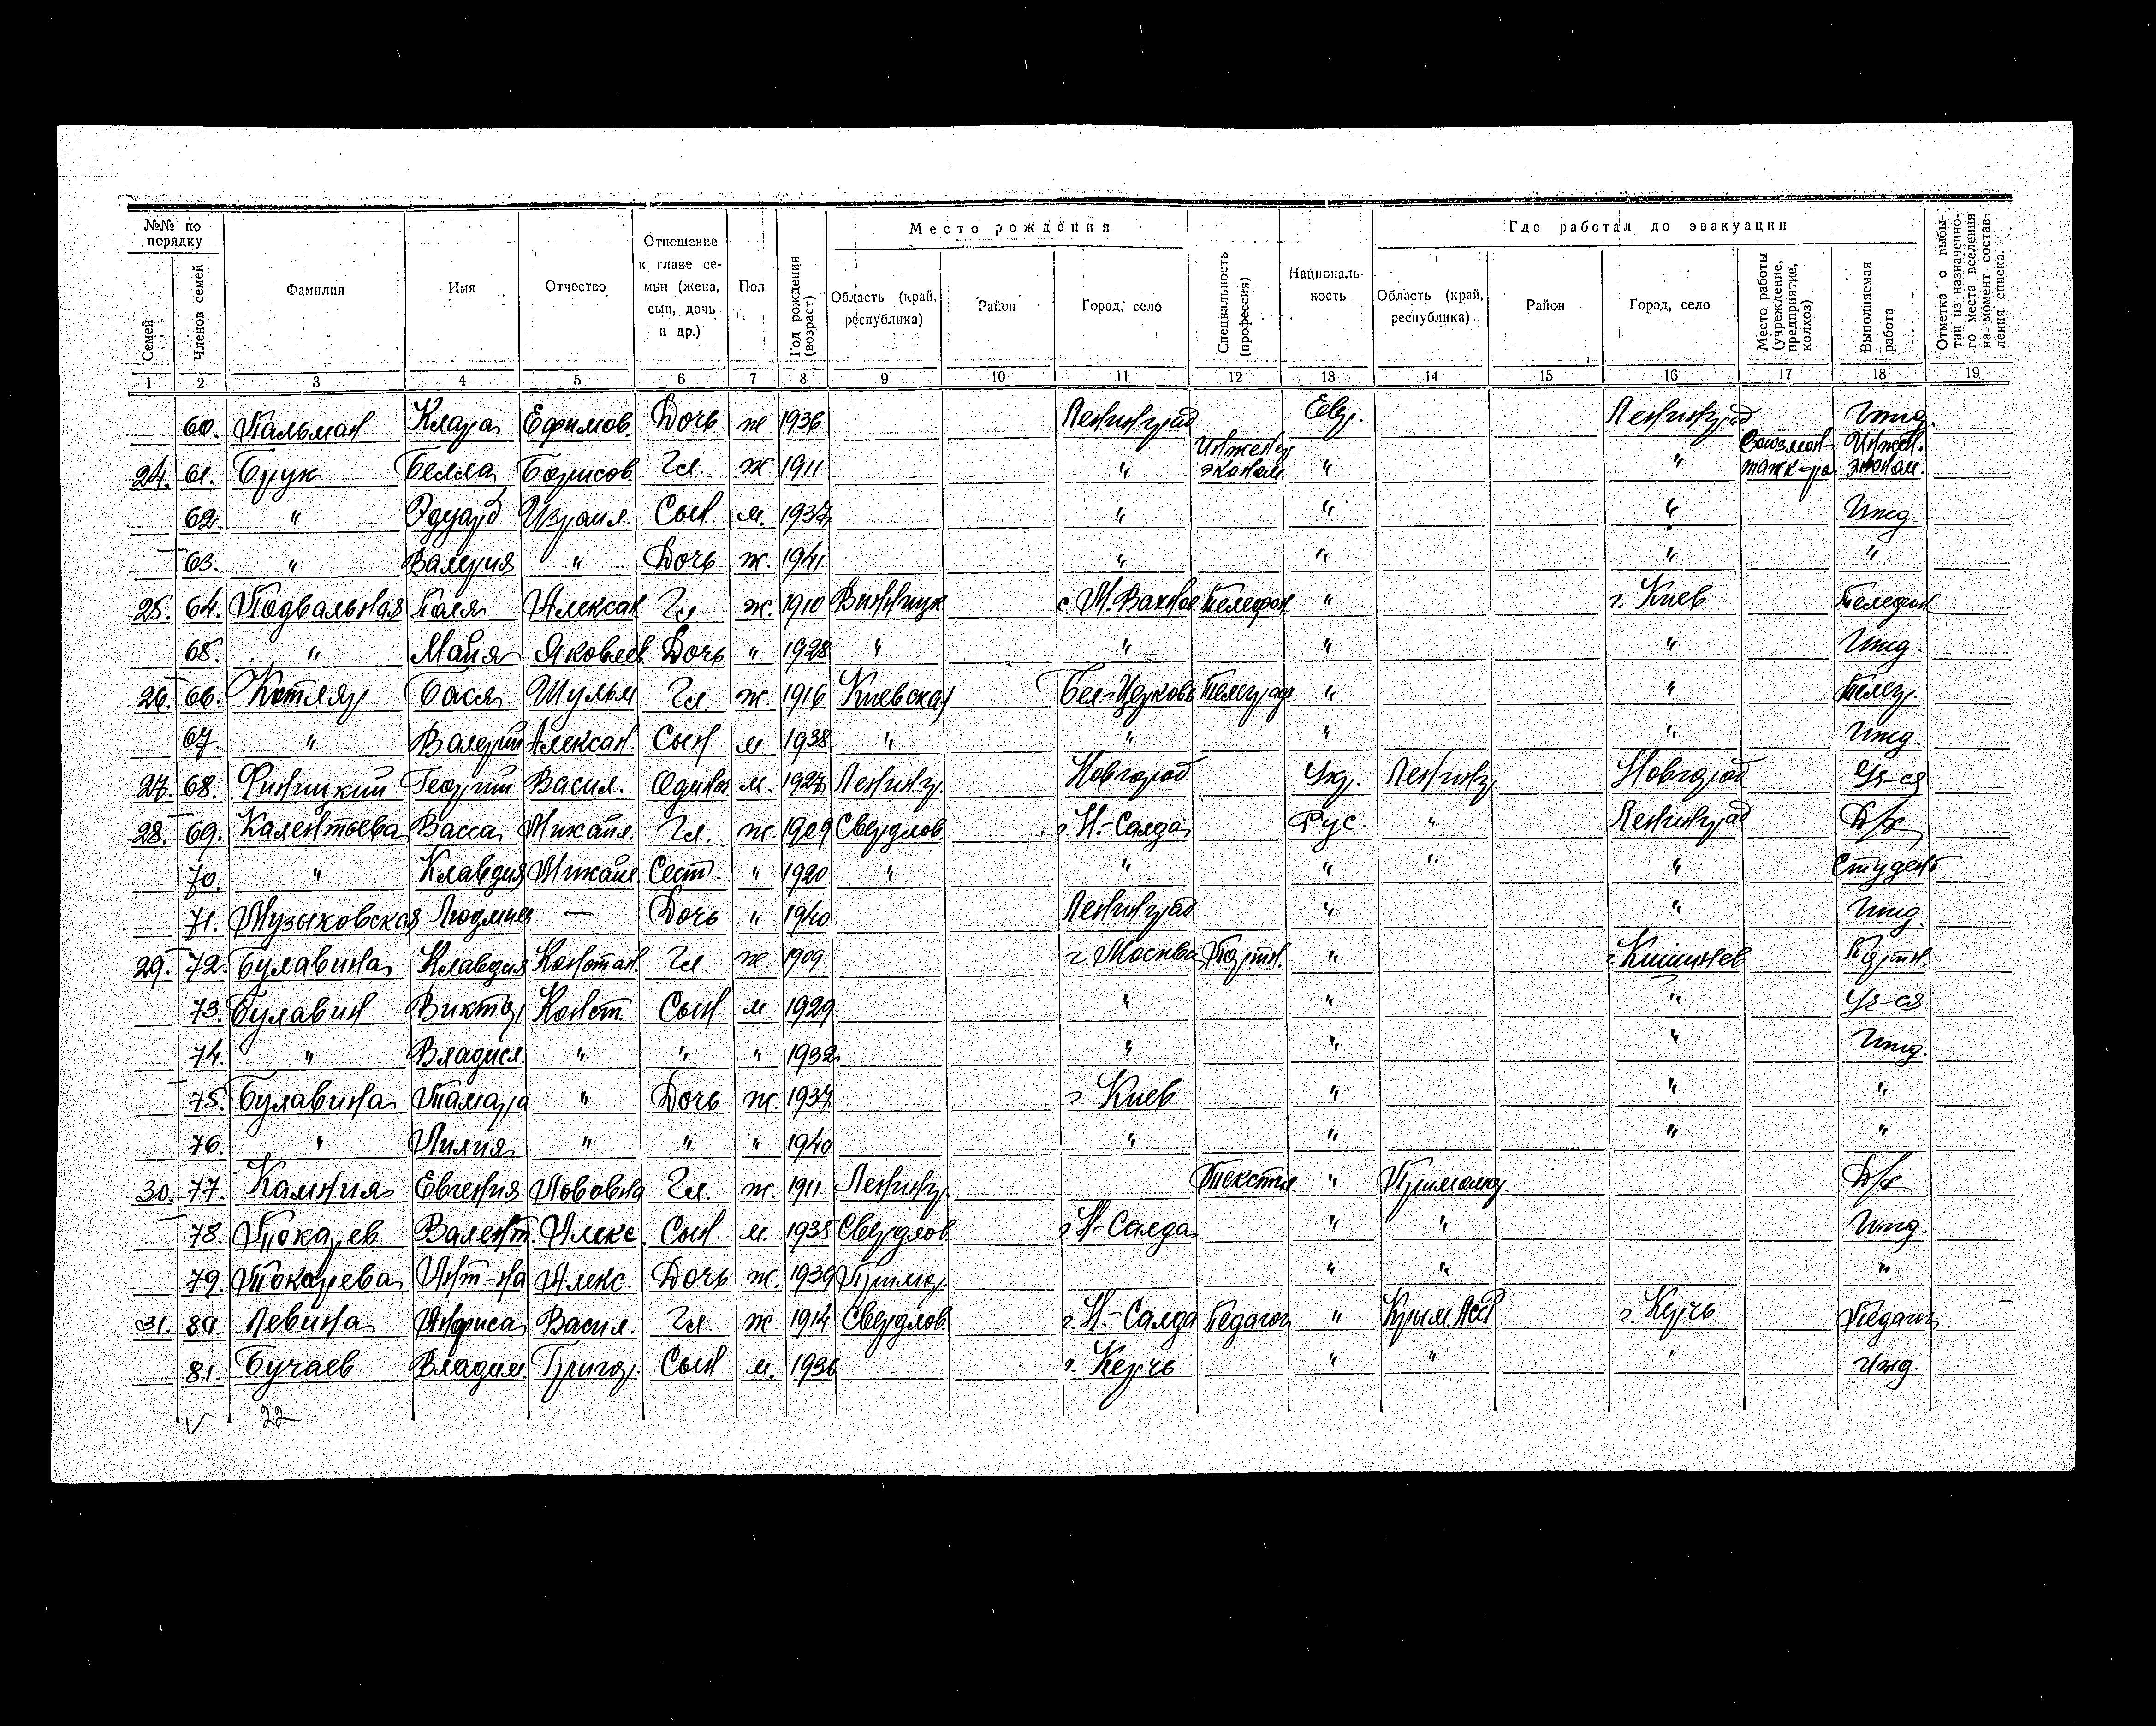 №№ по порядку
Место рождения
Где работал до эвакуации
Семей
Членов семей
Фамилия
Имя
Отчество
Отношение к главе семьи (жена, сын, дочь и др.)
Пол
Год рождения (возраст)
Область (край, республика)
Район
Город, село
Специальность (профессия)
Националь-
ность
Область (край, республика)
Район
Город, село
Место работы (учреждение, предприятие, колхоз)
Выполняемая работа
Отметка о выбы-
тии из назначенно-
го места вселения
на момент состав-
ления списка.
1 2 3 4 5 6 7 8 9 10 11 12 13 14 15 16 17 18 19
60. Пальман Клара Ефимов. Дочь ж 1936 Ленинград Евр. Ленинград Ижд.
24. 61. Брук Белла Борисов. Гл. ж. 1911 " Инженер эконом " " Союзмон- Инжен. эконом.
62. " Эдуард Израил. Сын м. 1937 " " " Ижд.
63. " Валерия " Дочь ж. 1941 " " " "
25. 64. Подвальная Поля Алексан Гл ж. 1910 Винницк с. М. Телефон " г. Киев Телефон.
65. " Майя Яковлев. Дочь " 1928 " " " " Ижд.
26. 66. Котляр Бася Шульм. Гл. ж. 1916 Киевская Бел.-Церковь Телеграф. " " Телегр.
67. " Валерий Алексан. Сын м 1938 " " " " Ижд.
27. 68. Финицкий Георгий Васил. Одинок м. 1927 Ленингр. Новгород Укр. Ленингр. Новгород Уч-ся
28. 69. Калентьева Васса Михайл. Гл. ж. 1909 Свердлов. г. Н.-Салда Рус. " Ленинград Д/х
70. " Клавдия Михайл. Сест " 1920 " " " " " Студент
71. Музыковская Людмила — Дочь " 1940 Ленинград " " Ижд.
29. 72. Булавина Клавдия Констан. Гл. ж. 1909 г. Москва Портн. " г. Кишинев Портн.
73. Булавин Виктор Конст. Сын м. 1929 " " " Уч-ся
74. " Владисл. " " " 1932 " " " Ижд.
75. Булавина Тамара " Дочь ж. 1937 г. Киев " " "
76. " Лилия " " " 1940 " " " "
30. 77. Калиния Евгения Львовна Гл. ж. 1911 Ленингр. Текстил. " Приморск. Д/х
78. Токарев Валент. Алекс. Сын м. 1935 Свердлов. г. Н-Салда " " Ижд.
79. Токарева Ант-на Алекс. Дочь ж. 1939 Примор. " " "
31. 80. Левина Анфиса Васил. Гл. ж. 1914 Свердлов. г. Н.-Салда Педагог " Крым. АССР г. Керчь Педагог
81. Бучаев Владим. Григор. Сын м. 1936 г. Керчь " " " Ижд.
22